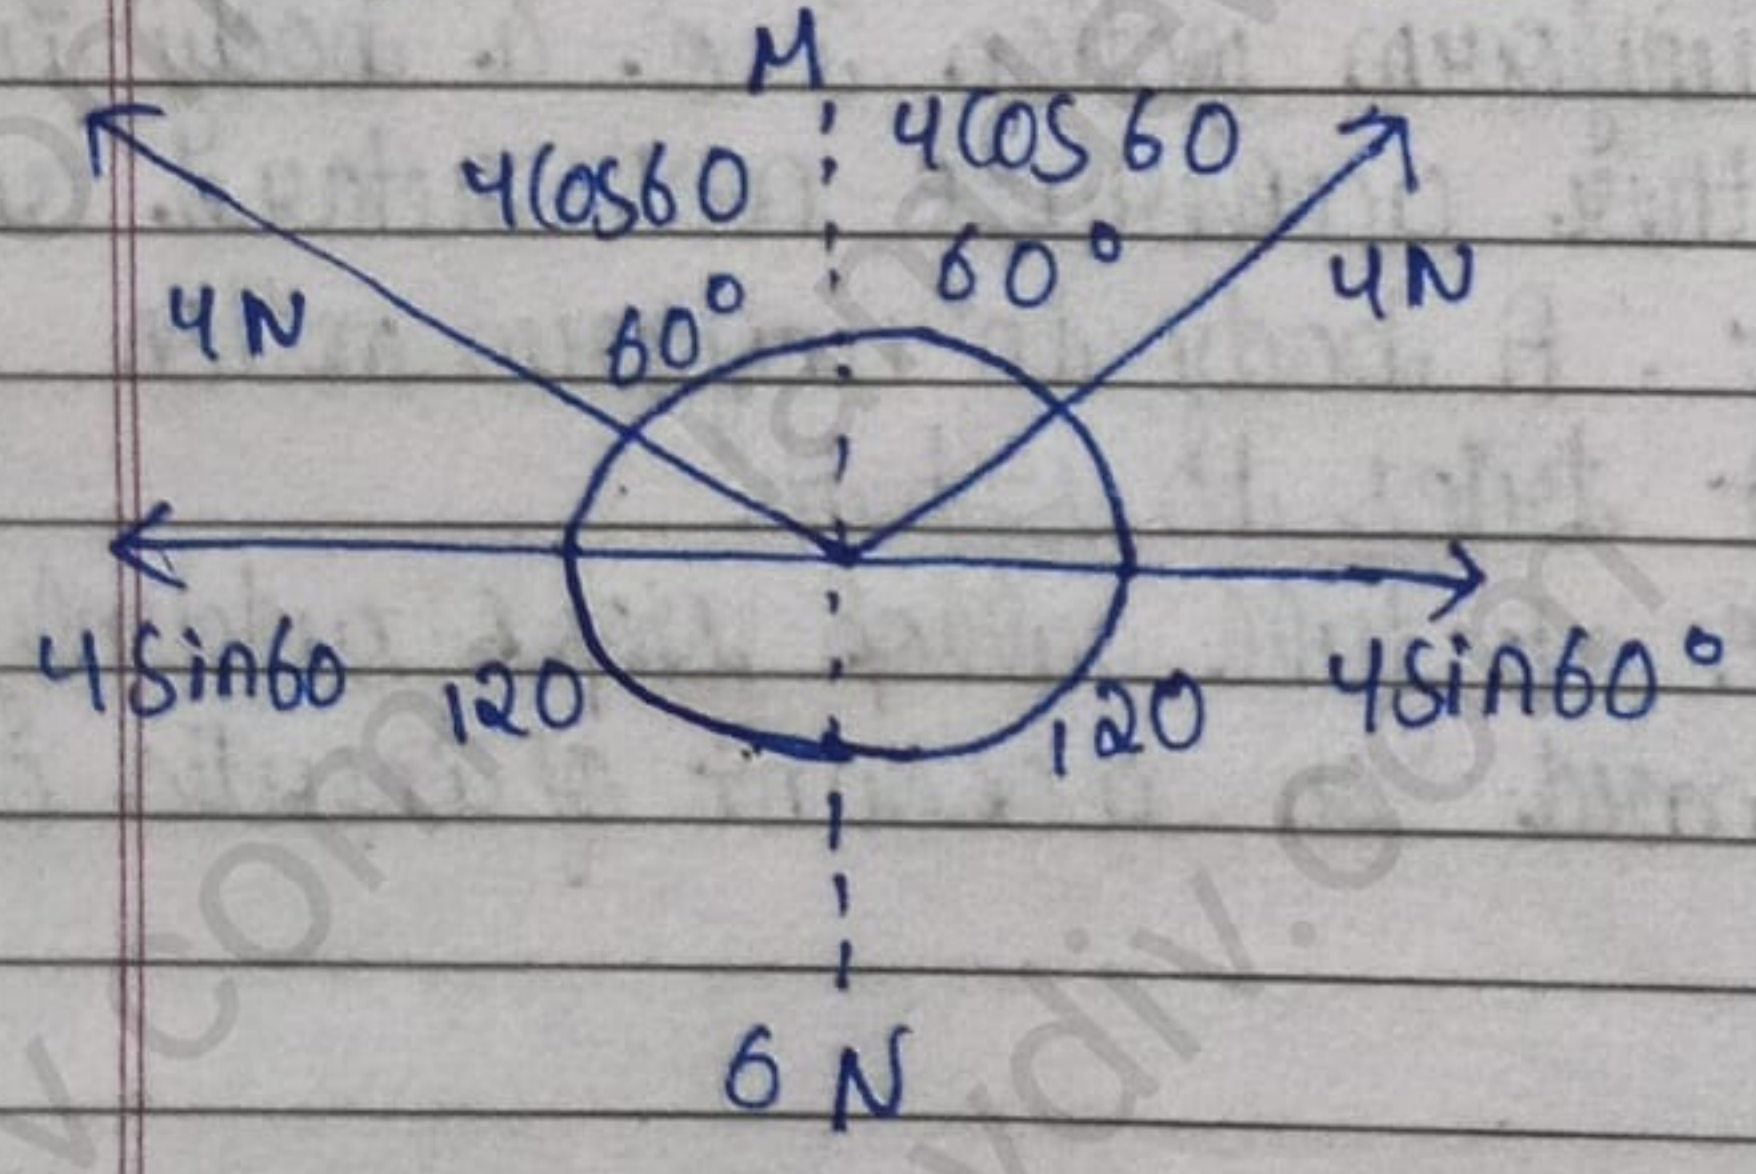 M
4cos60 4cos60
60° 60°
4N 4N
4sin60 120 120 4sin60°
6 N